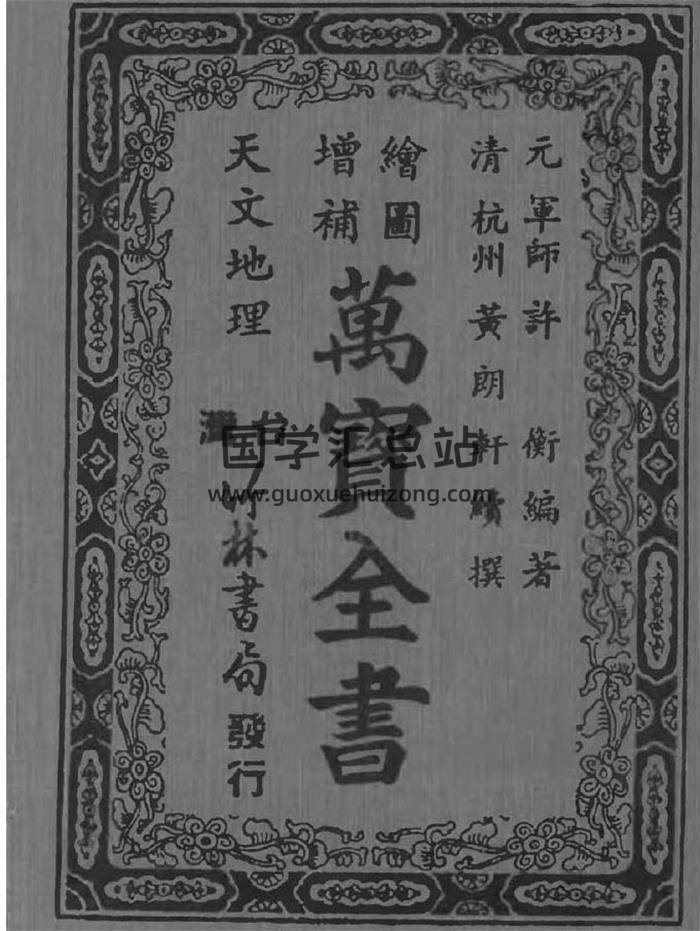 元軍師許衡編著
清杭州黃朗軒續撰
繪圖
增補
萬寶全書
天文地理
竹林書局發行
国学汇总站
www.guoxuehuizong.com